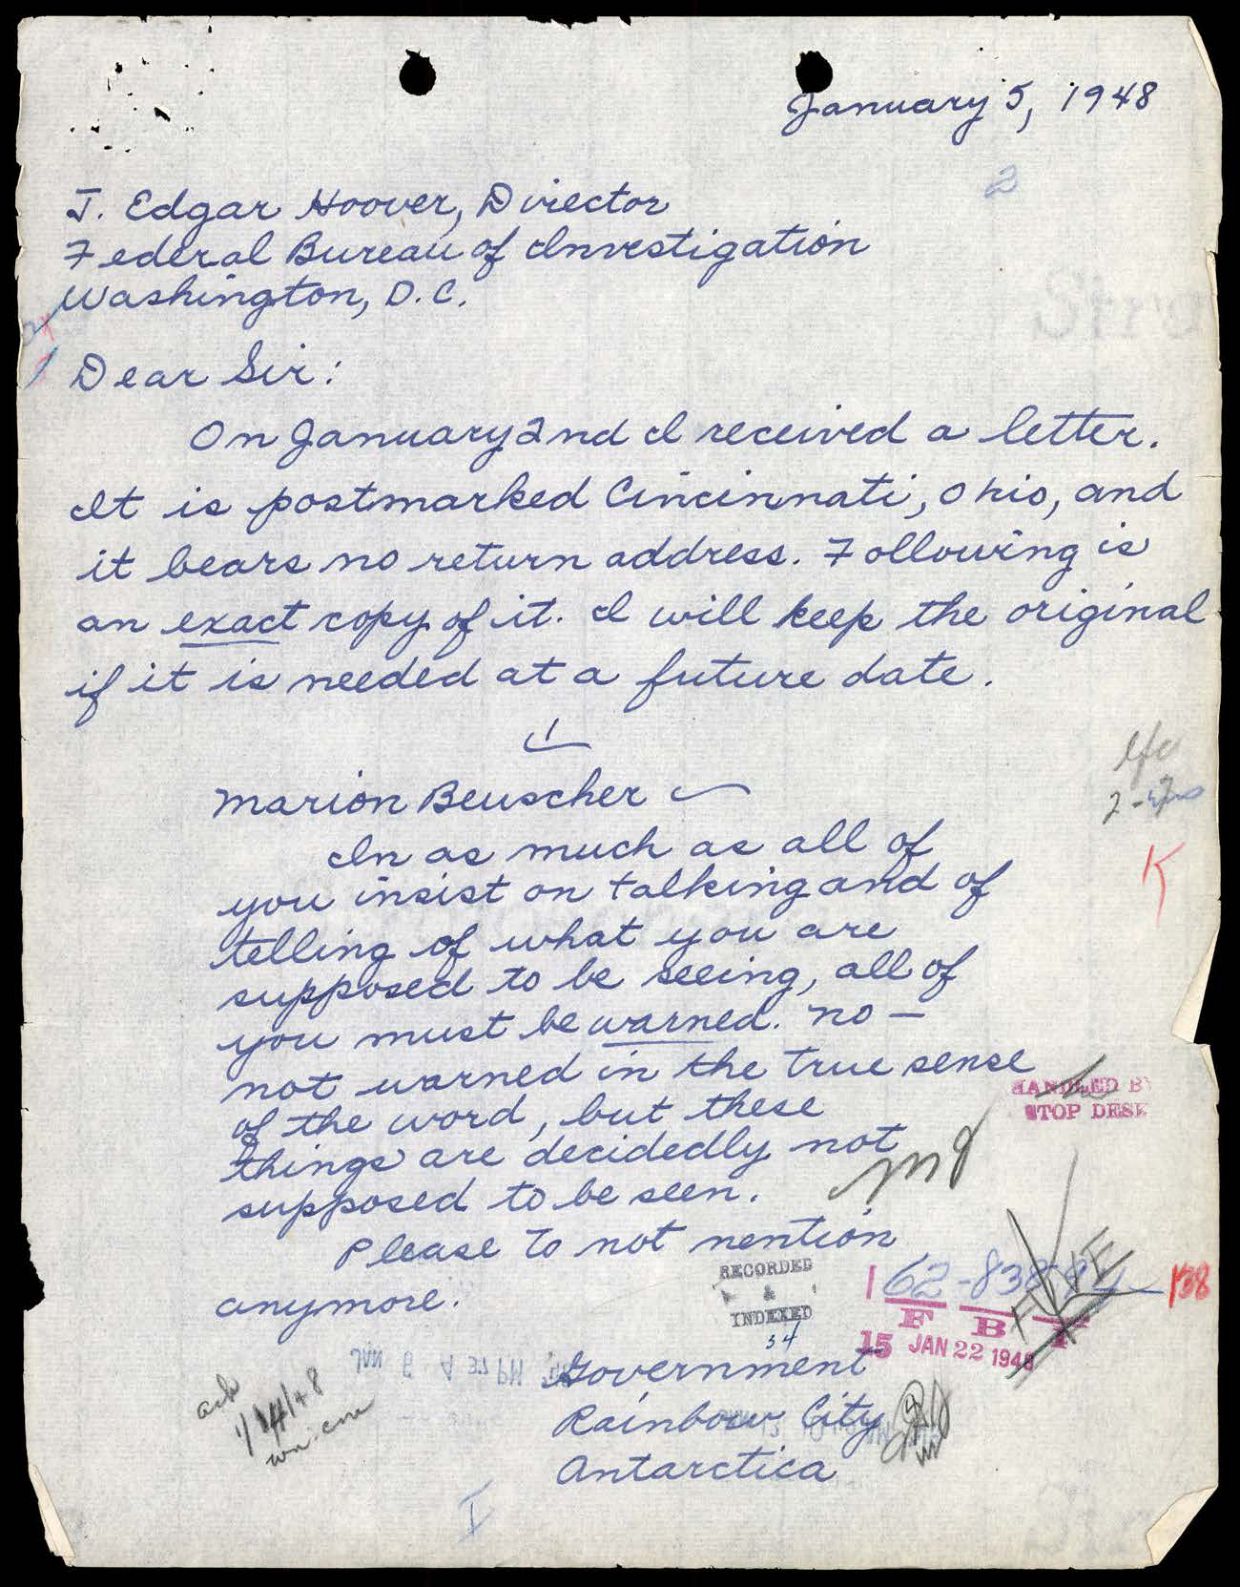 January 5, 1948
2
J. Edgar Hoover, Director
Federal Bureau of Investigation
Washington, D.C.
Dear Sir:
On January 2nd I received a letter.
It is postmarked Cincinnati, Ohio, and
it bears no return address. Following is
an exact copy of it. I will keep the original
if it is needed at a future date.
Marion Beuscher
In as much as all of
you insist on talking and of
telling of what you are
supposed to be seeing, all of
you must be warned. No —
not warned in the true sense
of the word, but these
things are decidedly not
supposed to be seen.
Please to not mention
anymore.
K
HANDLED BY
STOP DESK
RECORDED
&
INDEXED
34
162-83894
138
F B I
15 JAN 22 1948
Government
Rainbow City
Antarctica
ack
1/14/48